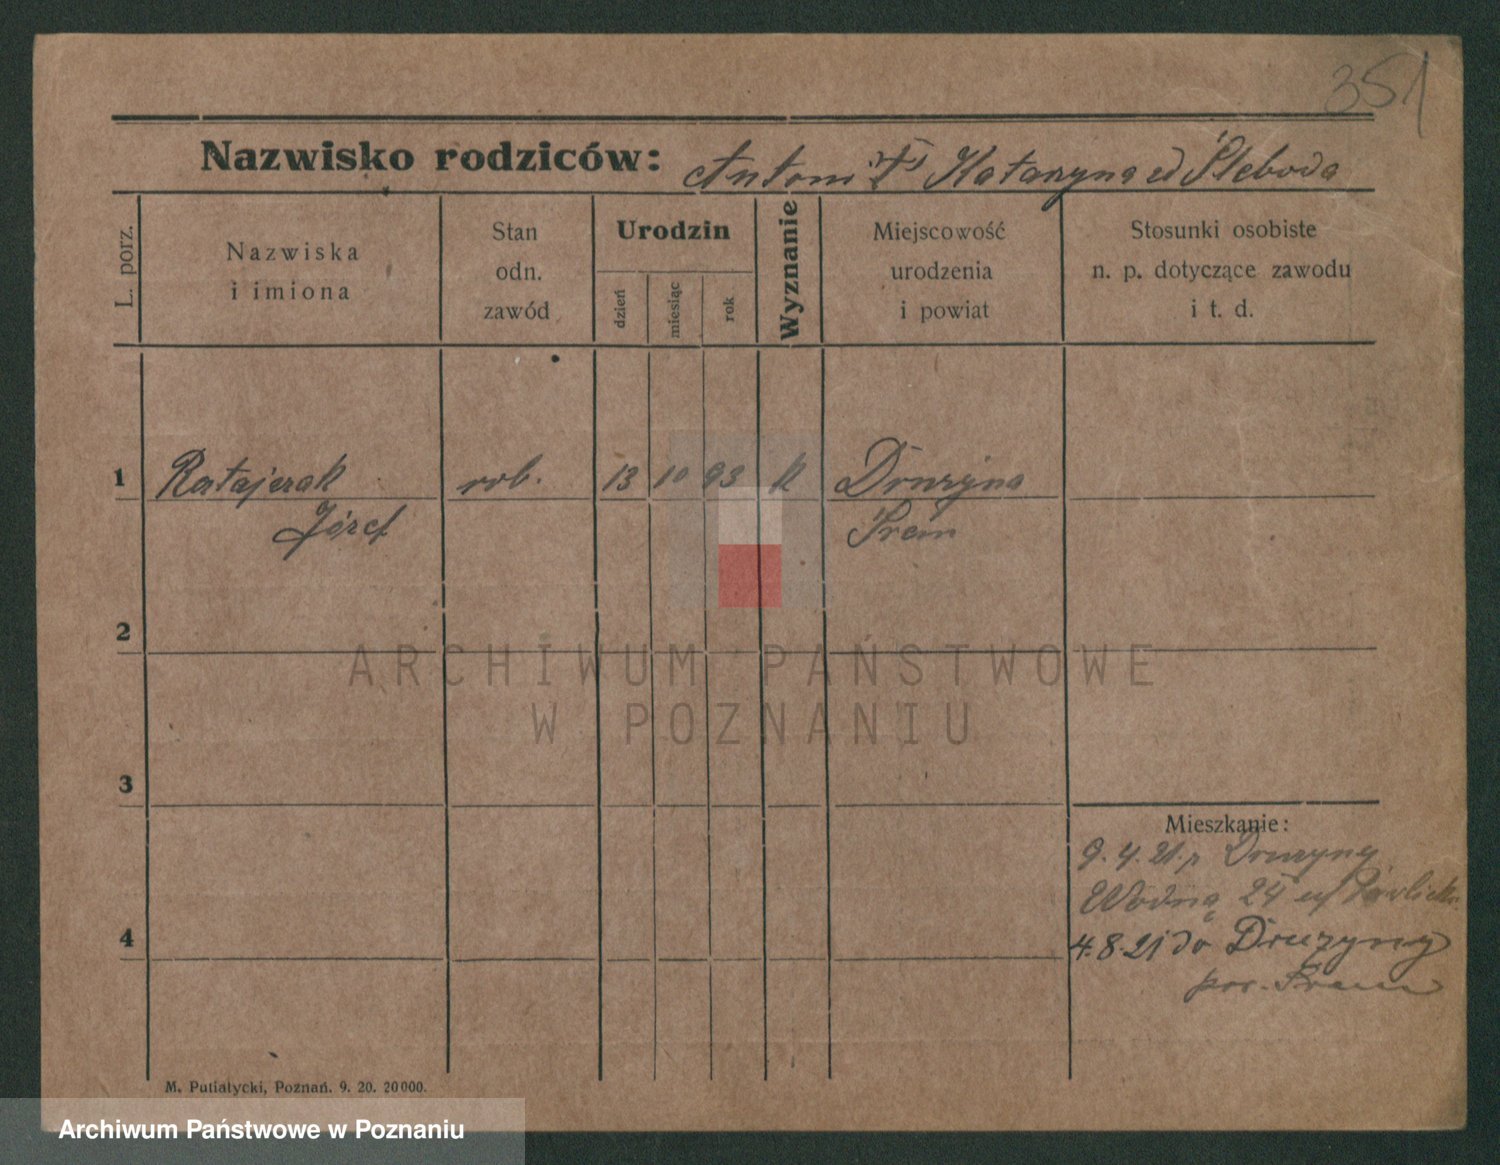 351
Nazwisko rodziców: Antoni i Katarzyna zd Śleboda
L. porz.
Nazwiska
i imiona
Stan
odn.
zawód
Urodzin
dzień
miesiąc
rok
Wyznanie
Miejscowość
urodzenia
i powiat
Stosunki osobiste
n. p. dotyczące zawodu
i t. d.
1 Ratajczak rob. 13 10 93 k Drużyna
Józef Śrem
2
ARCHIWUM PAŃSTWOWE
W POZNANIU
3
Mieszkanie:
9. 4. 21. z Drużyny
Wodna 25
4
4. 8. 21 do Drużyny
pow. Śrem
M. Putiatycki, Poznań. 9. 20. 20000.
Archiwum Państwowe w Poznaniu